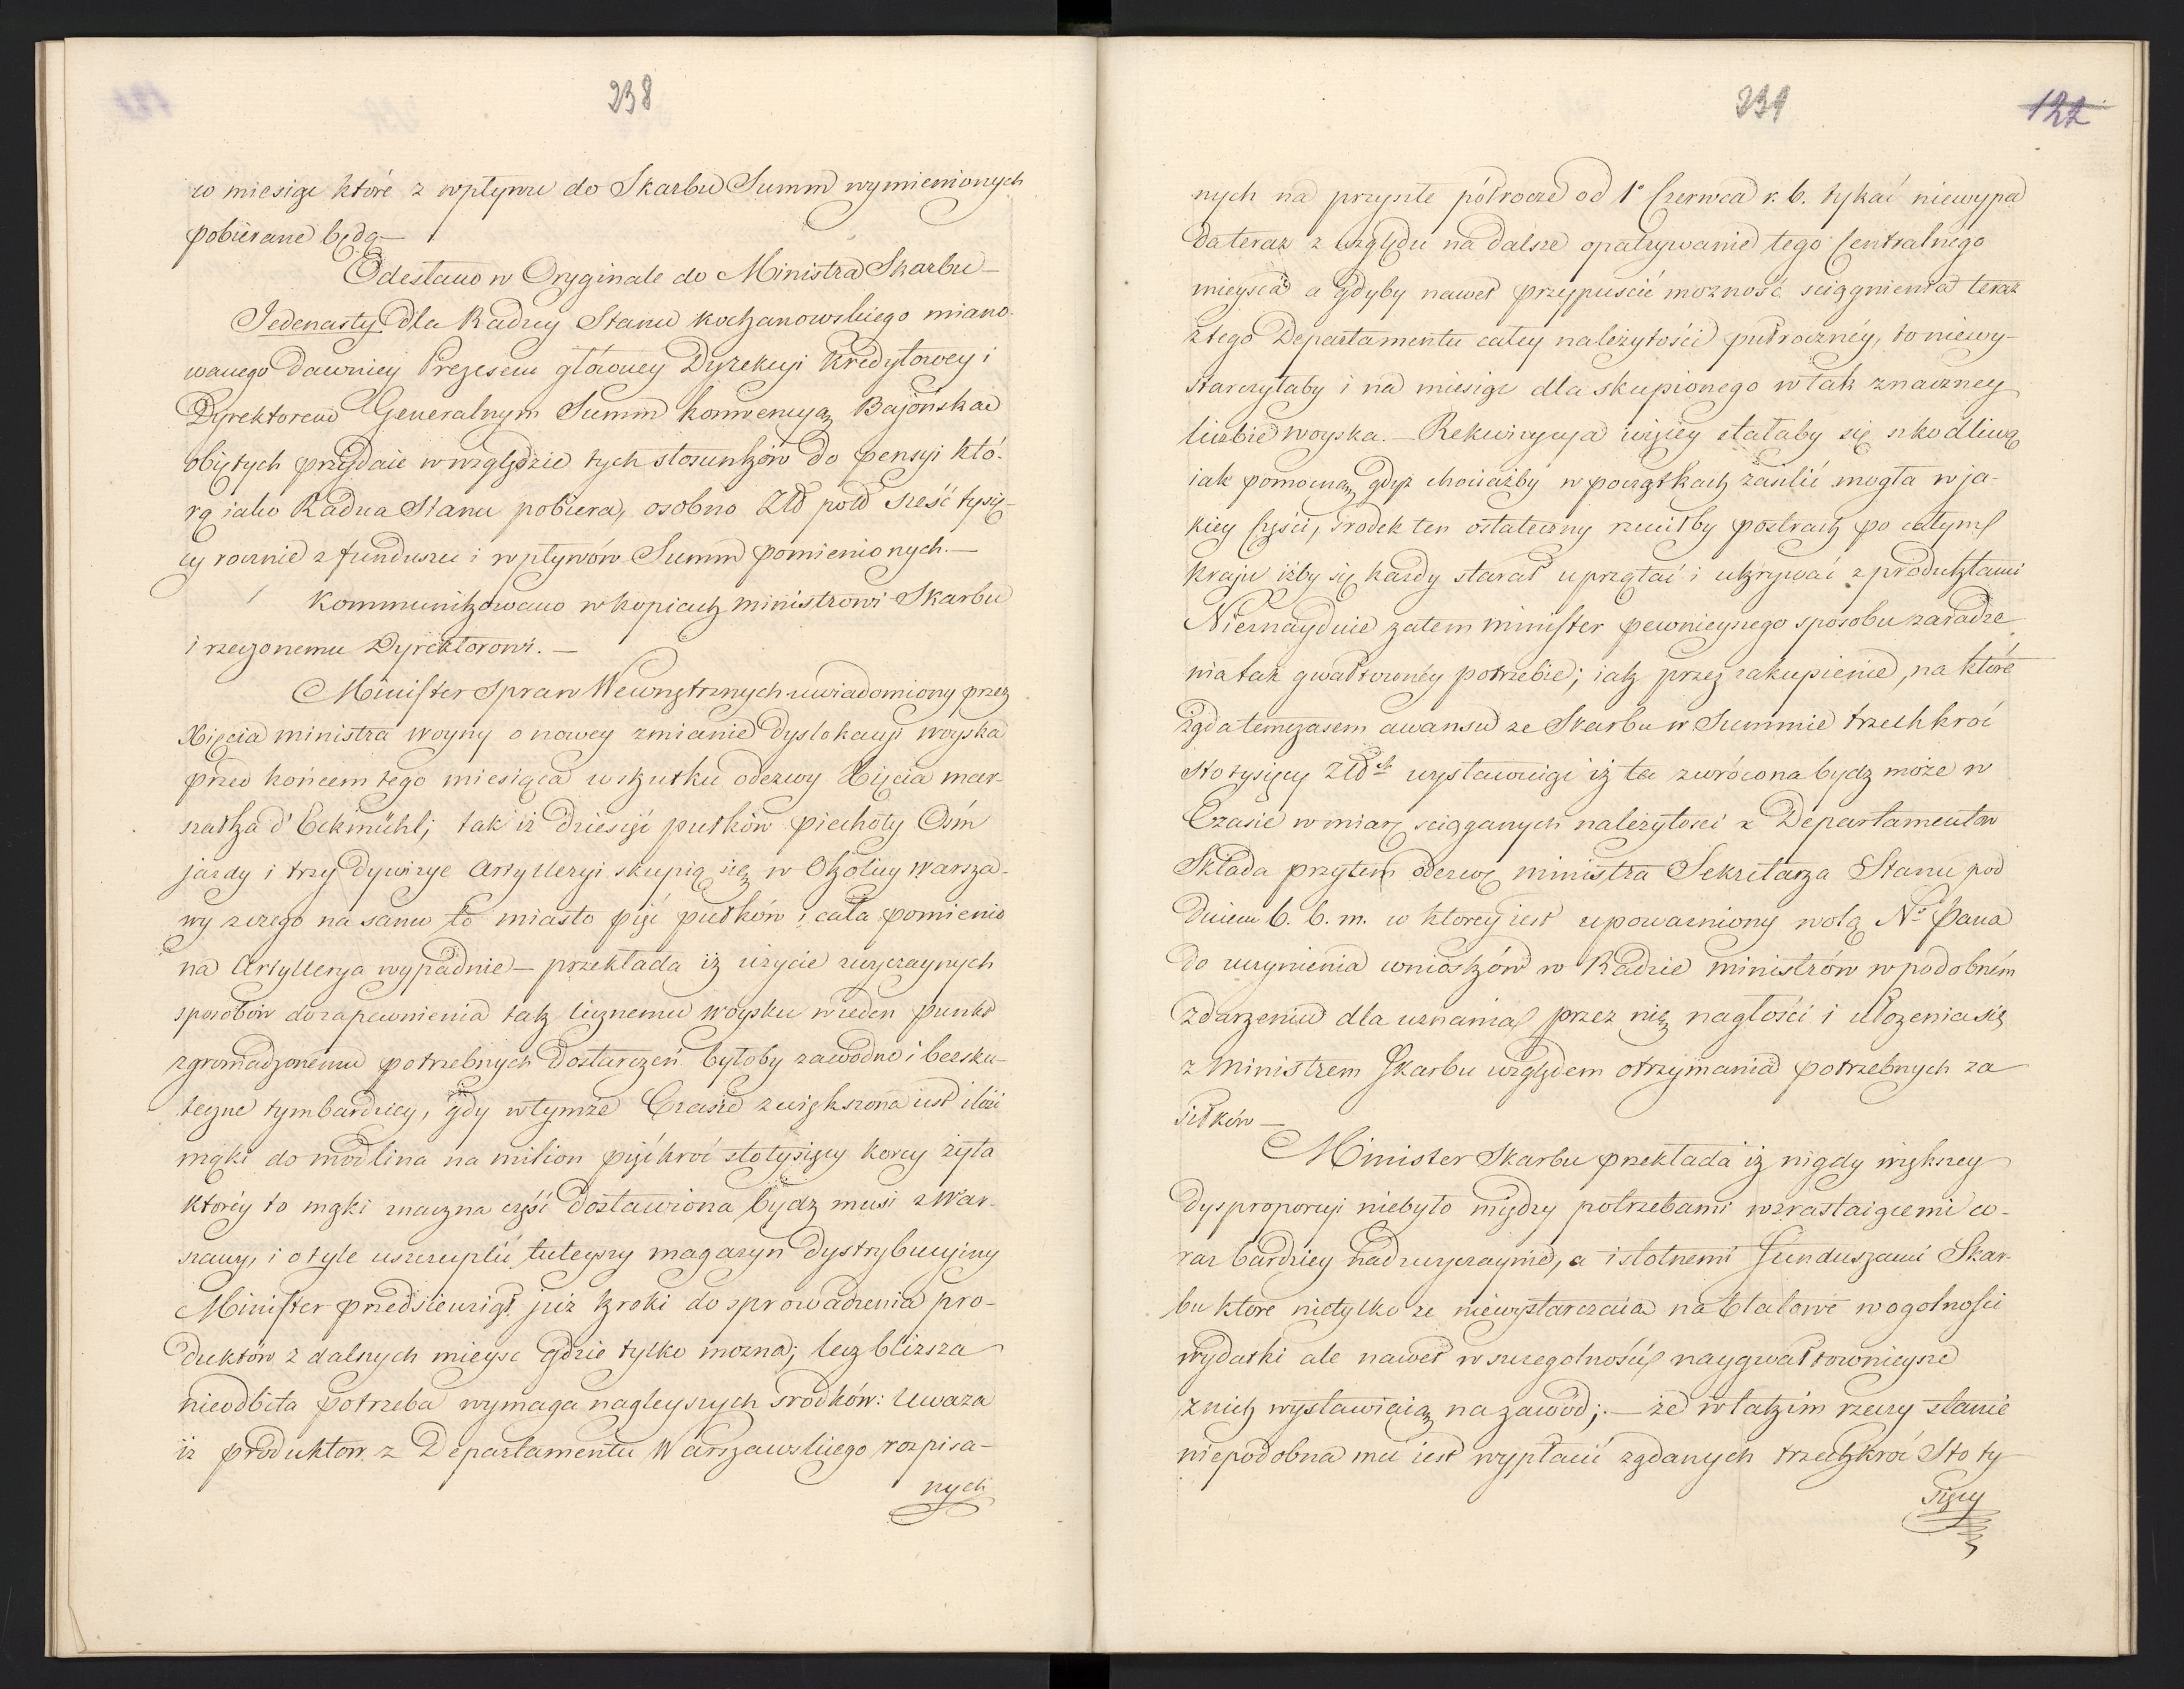 238
w miesiąc które z wpływu do Skarbu Summ wymienionych
pobierane będą —
Odesłano w Oryginale do Ministra Skarbu —
Jedenasty dla Radzcy Stanu Kochanowskiego miano-
wanego dawniey Prezesem głowney Dyrekcyi Kredytowey i
Dyrektorem Generalnym Summ konwencyą Bajońską
obiętych przydaie w względzie tych stosunków do pensyi któ-
rą iako Radca Stanu pobiera, osobno Złł pold sześć tysię-
cy rocznie z funduszu i wpływów Summ pomienionych. —
Kommunikowano w kopiach Ministrowi Skarbu
i rzeczonemu Dyrektorowi. —
Minister Spraw Wewnętrznych uwiadomiony przez
Xięcia ministra woyny o nowey zmianie dyslokacyi woyska
przed końcem tego miesiąca w skutku odezwy Xięcia mar-
szałka d'Eckmühl; tak iż dziesięć pułków piechoty Ośm
jazdy i trzy dywizye Artylleryi skupią się w Okolicy Warsza-
wy z czego na samo to miasto pięć pułków i cała pomienio
na Artyllerya wypadnie — przekłada iż użycie zwyczaynych
sposobów do zapewnienia tak licznemu woysku w ieden punkt
zgromadzonemu potrzebnych dostarczeń byłoby zawodne i bezsku-
teczne tymbardziey, gdy w tymże Czasie zwiększona iest ilość
mąki do Modlina na milion pięćkroć stotysięcy korcy żyta
którey to mąki znaczna część dostawiona bydz musi z War-
szawy, i o tyle uszczuplić tuteyszy magazyn dystrybucyiny
Minister przedsiewziął już kroki do sprowadzenia pro-
duktów z dalnych mieysc gdzie tylko można; lecz bliższa
nieodbita potrzeba wymaga nagleyszych srodków: Uważa
iż produktów z Departamentu Warszawskiego rozpisa-
nych
239
122
nych na przyszłe półrocze od 1o Czerwca r. b. tykać niewypa
da teraz z względu na dalsze opatrywanie tego Centralnego
mieysca a gdyby nawet przypuścić możność sciągnienia teraz
z tego Departamentu całey należytości pułroczney, to niewy-
starczyłaby i na miesiąc dla skupionego w tak znaczney
liczbie woyska. — Rekwizycya więcey stałaby się szkodliwą
iak pomocną, gdyż chociażby w początkach zasilić mogła w ja-
kiey części, srodek ten ostateczny rzuciłby postrach po całym
kraju iżby się każdy starał uprzątać i ukrywać z produktami
Nieznayduie zatem minister pewnieyszego sposobu zaradze
nia tak gwałtowney potrzebie; iak przez zakupienie, na które
żąda temczasem awansu ze Skarbu w Summie trzechkroć
stotysięcy Złł wystawuiąc iż ta zwrócona bydz może w
Czasie w miarę sciąganych należytości z Departamentów
Składa przytem odezwę ministra Sekretarza Stanu pod
dniem 6. b. m. w ktorey iest upoważniony wolą No Pana
do uczynienia wniosków w Radzie ministrów w podobném
zdarzeniu dla uznania przez nię nagłości i ułożenia się
z Ministrem Skarbu względem otrzymania potrzebnych za
siłków —
Minister Skarbu przekłada iż nigdy większey
dysproporcyi niebyło między potrzebami wzrastaiącemi co-
raz bardziey nadzwyczaynie, a istotnemi funduszami Skar-
bu które nietylko że niewystarczaią na Etatowe w ogolności
wydatki ale nawet w szczegolności naygwałtownieysze
z nich wystawiaią na zawód; — że w takim rzeczy stanie
niepodobna mu iest wypłacić żądanych trzechkroć Stoty
sięcy